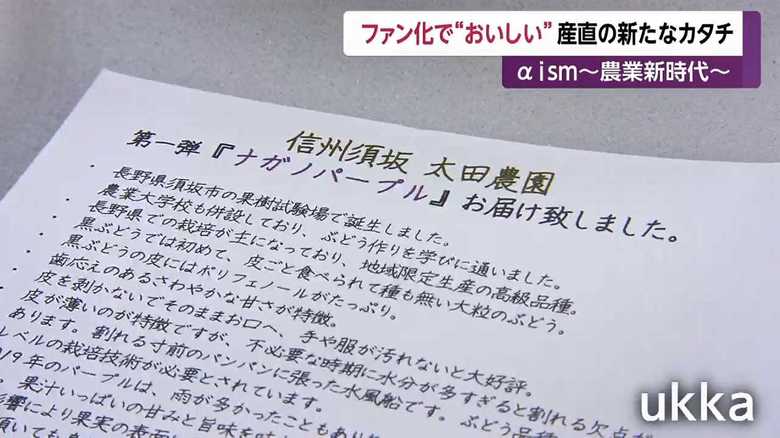 ファン化で“おいしい”産直の新たなカタチ
αism～農業新時代～
信州須坂 太田農園
第一弾『ナガノパープル』お届け致しました。
・長野県須坂市の果樹試験場で誕生しました。
農業大学校も併設しており、ぶどう作りを学びに通いました。
・長野県での栽培が主になっており、地域限定生産の高級品種。
・黒ぶどうでは初めて、皮ごと食べられて種も無い大粒のぶどう。
・黒ぶどうの皮にはポリフェノールがたっぷり。
・歯応えのあるさわやかな甘さが特徴。
皮を剥かないでそのままお口へ、手や服が汚れないと大好評。
皮が薄いのが特徴ですが、不必要な時期に水分が多すぎると割れる欠点が
あります。割れる寸前のパンパンに張った水風船です。ぶどう品種
レベルの栽培技術が必要とされています。
19年のパープルは、雨が多かったこともあり
果汁いっぱいの甘みと旨味を
影響により果実の表面
ukka